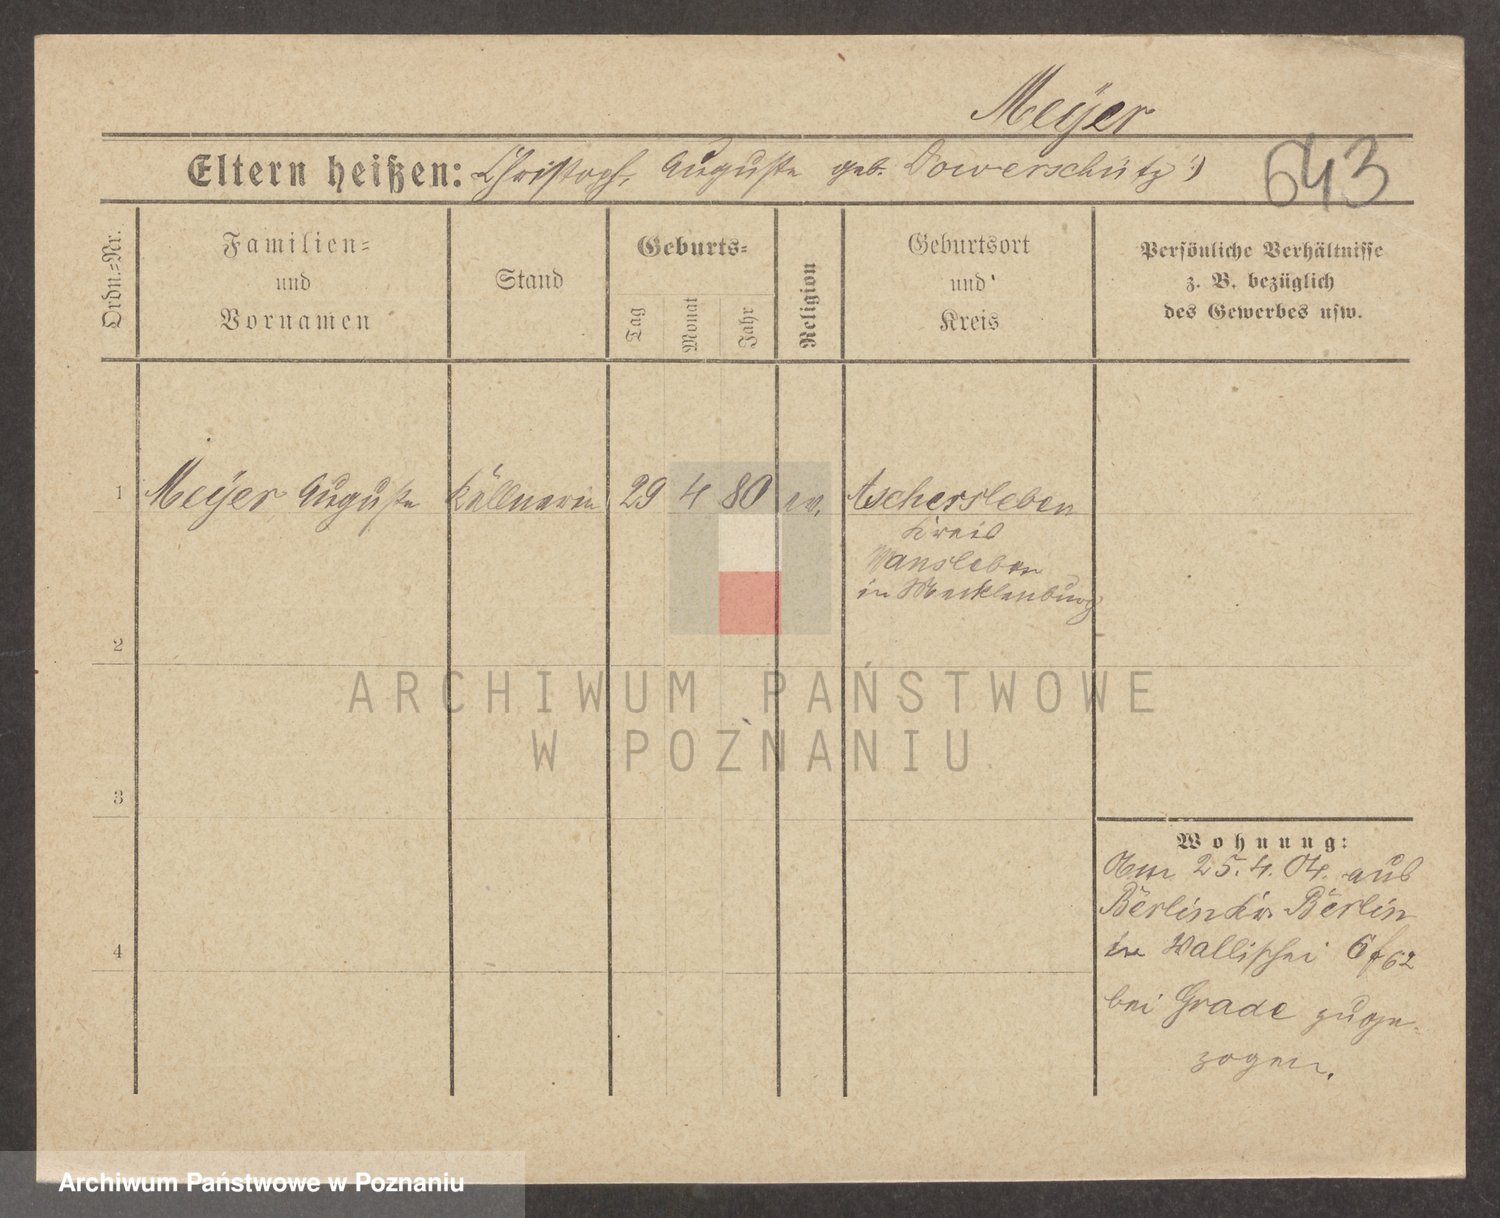 Meÿer
Eltern heißen: Christoph, Auguste geb. Dowerschütz :)
643
Ordn.=Nr.
Familien=
und
Vornamen
Stand
Geburts=
Tag
Monat
Jahr
Religion
Geburtsort
und
Kreis
Persönliche Verhältnisse
z. B. bezüglich
des Gewerbes usw.
1 Meÿer Auguste Källnerin 29 4 80 ev. Aschersleben
Kreis
Wansleben
in Mecklenburg
2
3
4
ARCHIWUM PAŃSTWOWE
W POZNANIU
Wohnung:
Am 25.4.04. aus
Berlin Kr. Berlin
in Wallischei 61/62
bei Grade zuge-
zogen.
Archiwum Państwowe w Poznaniu